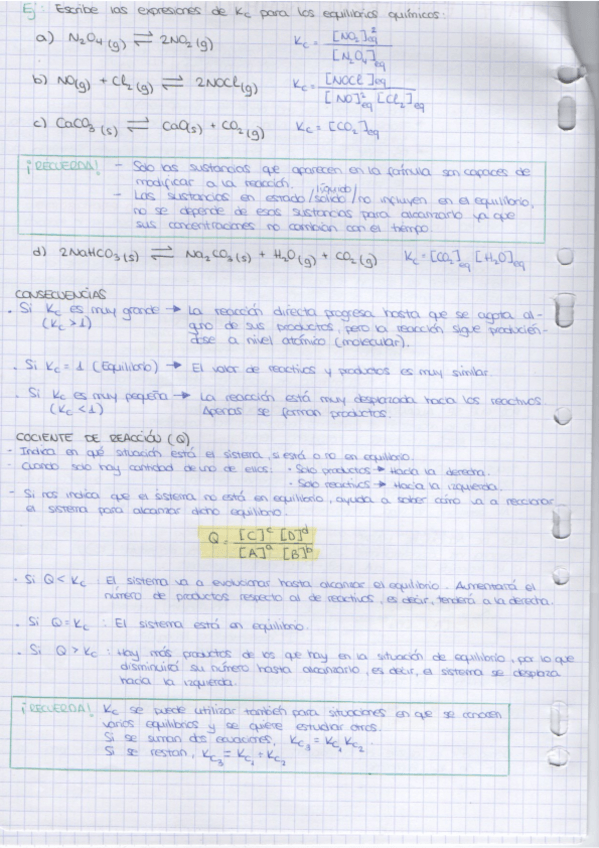 Ej: Escribe las expresiones de Kc para los equilibrios químicos:
a) N₂O₄(g) ⇌ 2NO₂(g) Kc = [NO₂]²eq / [N₂O₄]eq
b) NO(g) + Cl₂(g) ⇌ 2NOCl(g) Kc = [NOCl]eq / [NO]²eq [Cl₂]eq
c) CaCO₃(s) ⇌ CaO(s) + CO₂(g) Kc = [CO₂]eq
¡RECUERDA! - Solo las sustancias que aparecen en la fórmula son capaces de
modificar a la reacción.
- Las sustancias en estado/sólido/líquido/no influyen en el equilibrio,
no se depende de esas sustancias para alcanzarlo ya que
sus concentraciones no cambian con el tiempo.
d) 2NaHCO₃(s) ⇌ Na₂CO₃(s) + H₂O(g) + CO₂(g) Kc = [CO₂]eq [H₂O]eq
CONSECUENCIAS
· Si Kc es muy grande → La reacción directa progresa hasta que se agota al-
(Kc > 1) guno de sus productos, pero la reacción sigue producién-
dose a nivel atómico (molecular).
· Si Kc = 1 (Equilibrio) → El valor de reactivos y productos es muy similar.
· Si Kc es muy pequeña → La reacción está muy desplazada hacia los reactivos.
(Kc < 1) Apenas se forman productos.
COCIENTE DE REACCIÓN (Q)
- Indica en qué situación está el sistema, si está o no en equilibrio.
- Cuando solo hay cantidad de uno de ellos: · Solo productos → Hacia la derecha.
· Solo reactivos → Hacia la izquierda.
- Si nos indica que el sistema no está en equilibrio, ayuda a saber cómo va a reaccionar
el sistema para alcanzar dicho equilibrio.
Q = [C]ᶜ [D]ᵈ / [A]ᵃ [B]ᵇ
· Si Q < Kc : El sistema va a evolucionar hasta alcanzar el equilibrio. Aumentará el
número de productos respecto al de reactivos, es decir, tenderá a la derecha.
· Si Q = Kc : El sistema está en equilibrio.
· Si Q > Kc : Hay más productos de los que hay en la situación de equilibrio, por lo que
disminuirá su número hasta alcanzarlo, es decir, el sistema se desplaza
hacia la izquierda.
¡RECUERDA! Kc se puede utilizar también para situaciones en que se conocen
varios equilibrios y se quiere estudiar otros.
Si se suman dos ecuaciones, Kc₃ = Kc₁ Kc₂.
Si se restan, Kc₃ = Kc₁ ÷ Kc₂